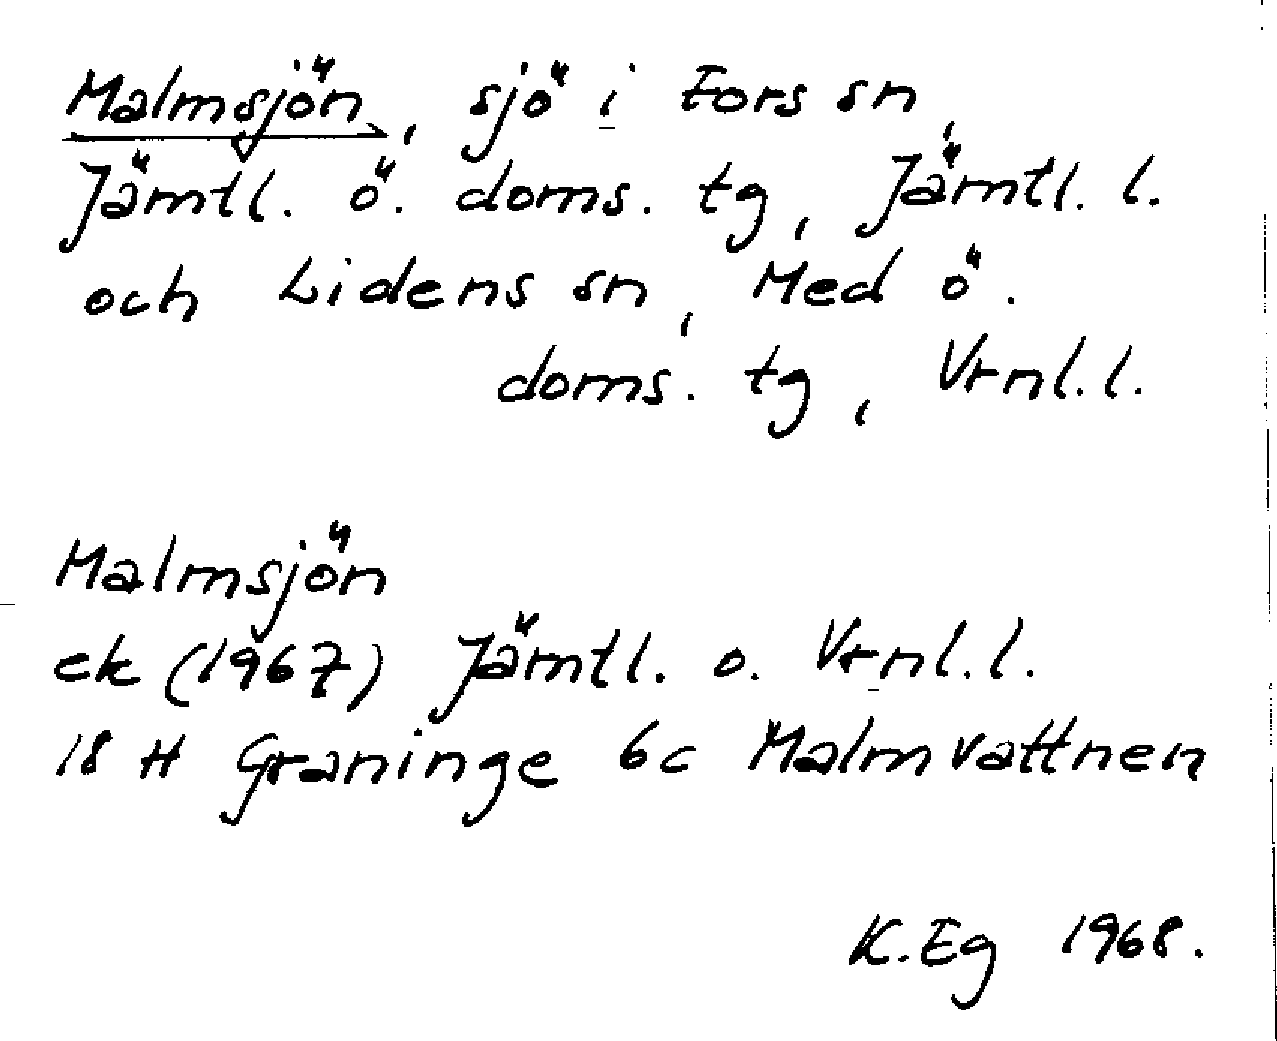 Malmsjön, sjö i Fors sn,
Jämtl. ö. doms. tg, Jämtl. l.
och Lidens sn, Med ö.
doms. tg, Vrnl. l.
Malmsjön
ek (1967) Jämtl. o. Vrnl. l.
18 H Graninge 6c Malmvattnen
K. Eg 1968.